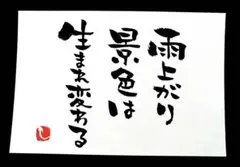 雨上がり
景色は
生まれ変わる